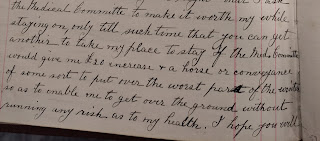 I ask
the Medical Committe to make it worth my while
staying on, only till such time that you can get
another to take my place to stay if the Med. Committe
would give me £20 increase & a horse or conveyance
of some sort to put over the worst part of the
so as to enable me to get over the ground without
running any risk as to my health. I hope you will